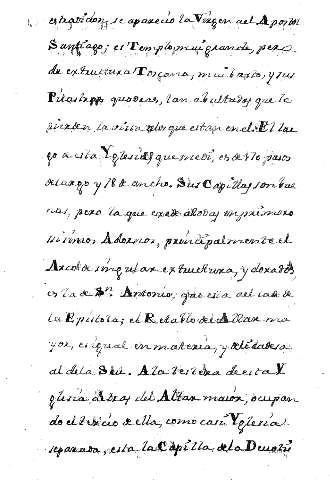 se apareció la Virgen al Apostol
Santiago; es Templo mui grande, pero
de extructura Toscana, mui baxo, y sus
Pilastras quadradas, tan abultadas que le
pierden la vista a los que estan en el. El lar
go a esta Yglesia que medi, es de 170 pasos
de largo y 78 de ancho. Sus Capillas son bue
nas, pero la que excede a todas en primoro
sisimos Adornos, principalmente el
Arco de singular extructura, y dorados
es la de Sn. Antonio, que esta al lado de
la Epistola; el Retablo del Altar ma
yor, es igual en materia, y delicadesa
al de la Seu. A la testera de esta Y
glesia atras del Altar maior, ocupan
do el tercio de ella, como casi Yglesia
separada, esta la Capilla de la Devoti